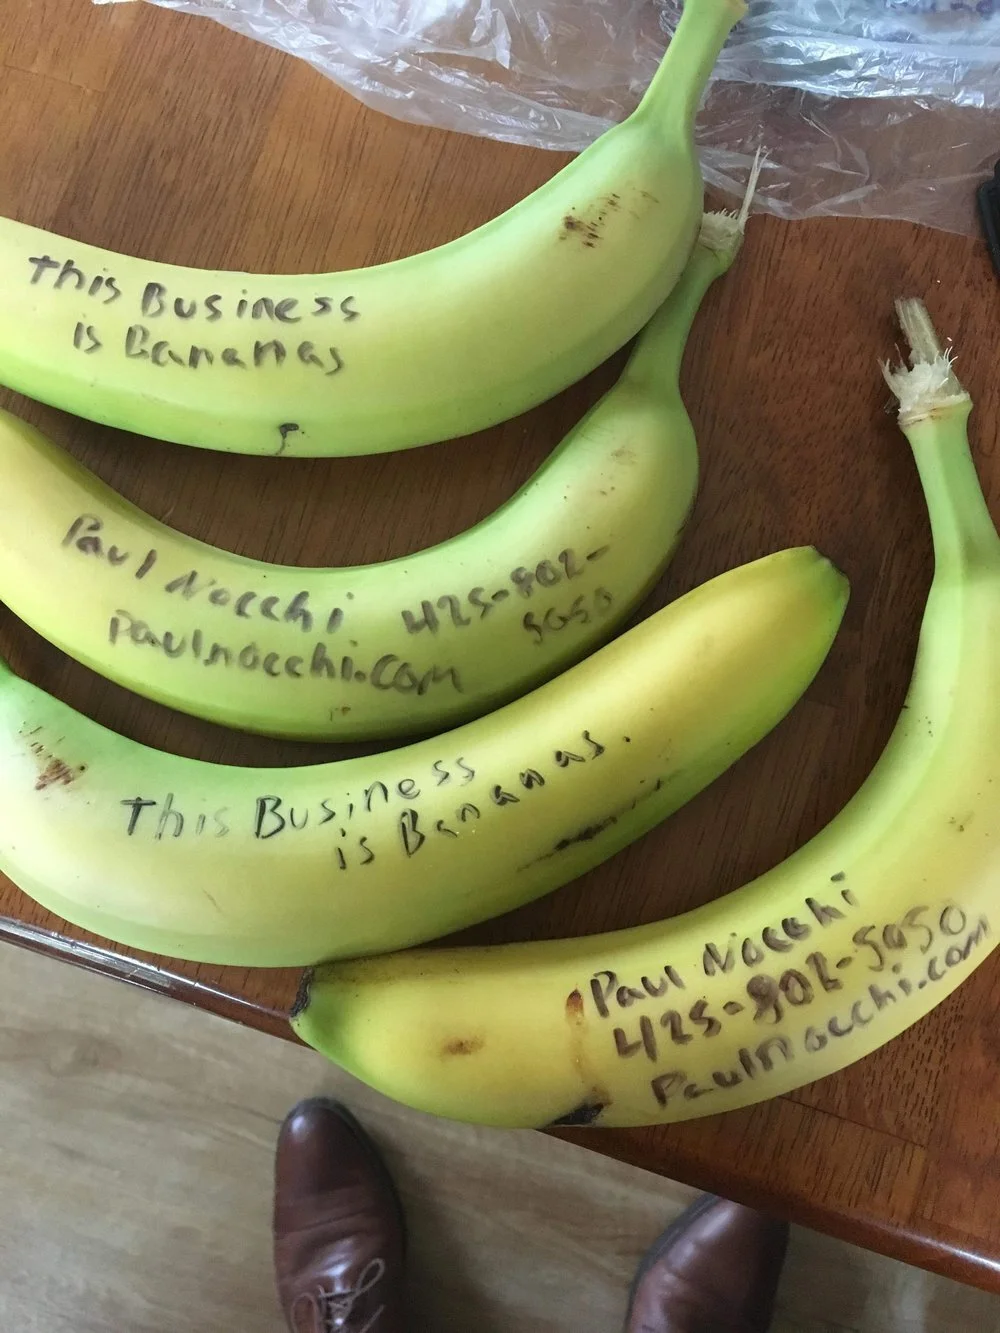 This Business
is Bananas
Paul Nocchi 425-802-
5050
paulnocchi.com
This Business
is Bananas.
Paul Nocchi
425-802-5050
Paulnocchi.com